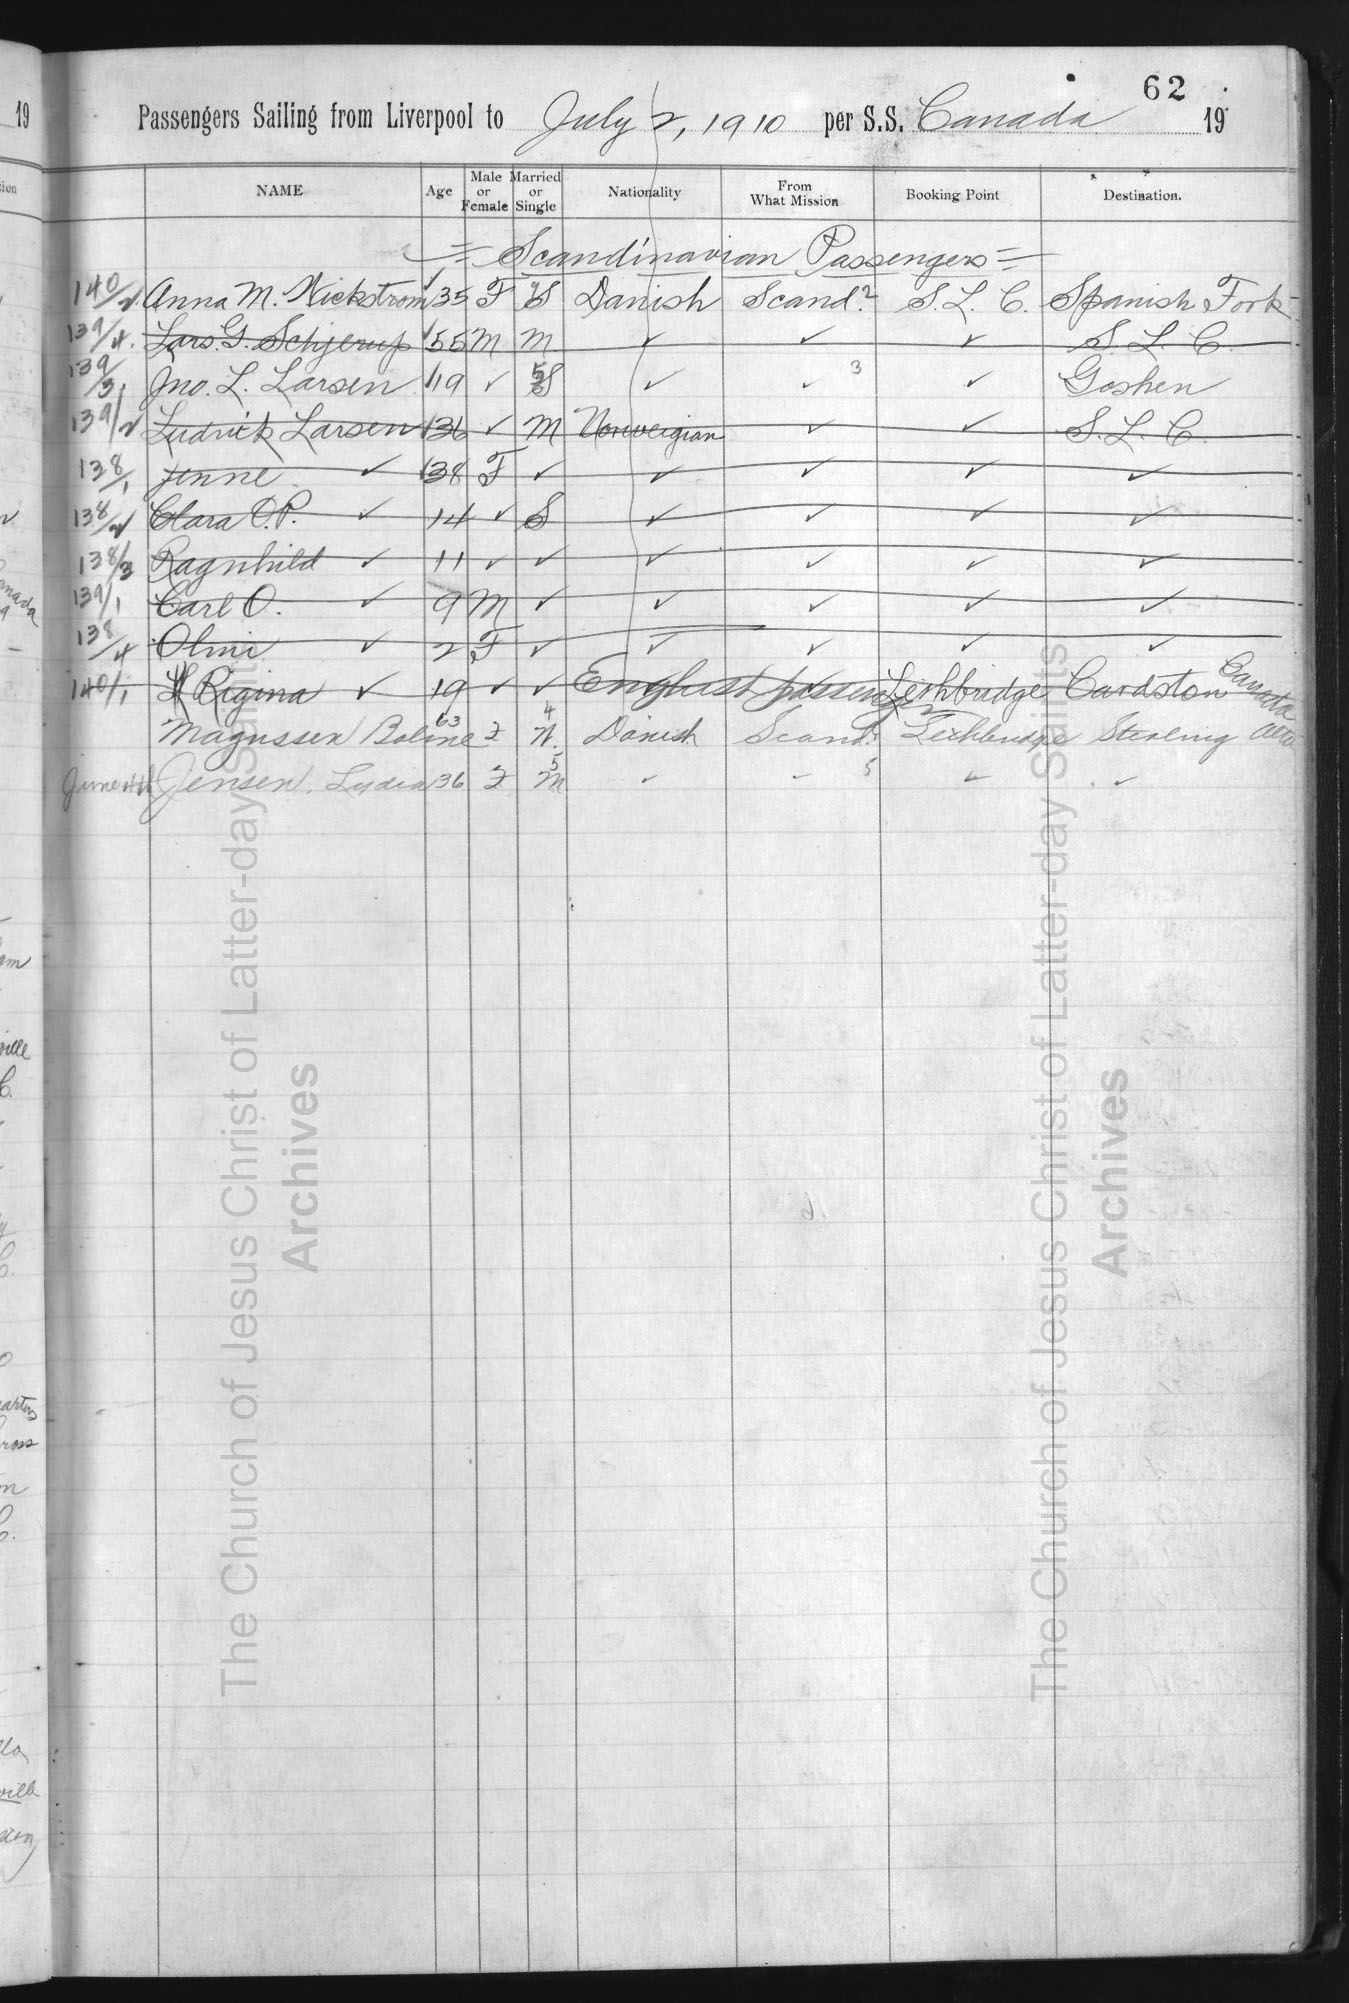 62
Passengers Sailing from Liverpool to July 2, 1910 per S.S. Canada 19
NAME Age Male or Female Married or Single Nationality From What Mission Booking Point Destination.
= Scandinavian Passengers =
140/2 Anna M. Nickstrom 35 F S Danish Scand. 2 S. L. C. Spanish Fork
139/4. Lars. G. Schjerup 55 M M ✓ ✓ ✓ S. L. C.
139/3 Jno. L. Larsen 19 ✓ S ✓ ✓ 3 ✓ Goshen
139/2 Ludvick Larsen 36 ✓ M Norweigian ✓ ✓ S. L. C.
138/1 Jenne ✓ 38 F ✓ ✓ ✓ ✓ ✓
138/2 Clara O.P. ✓ 14 ✓ S ✓ ✓ ✓ ✓
138/3 Ragnhild ✓ 11 ✓ ✓ ✓ ✓ ✓ ✓
139/1 Carl O. ✓ 9 M ✓ ✓ ✓ ✓ ✓
138/4 Olmi ✓ 2 F ✓ ✓ ✓ ✓ ✓
140/1 Rigina ✓ 19 ✓ ✓ English Lethbridge Cardston Canada
Magnussen Boline 63 F 4 W. Danish Scand. Lethbridge Sterling Alta
June 4th Jensen, Lydia 36 F 5 M ✓ ✓ 5 ✓ ✓
The Church of Jesus Christ of Latter-day Saints
Archives
The Church of Jesus Christ of Latter-day Saints
Archives